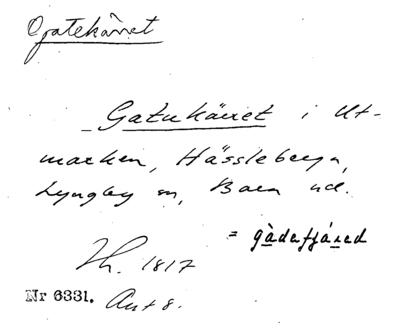 Gatekärret
Gatukärret i Ut-
marken, Hässleberga,
Lyngby sn, Bara hd.
= gàdefjáred
Th. 1817
Nr 6331. Ant 8.